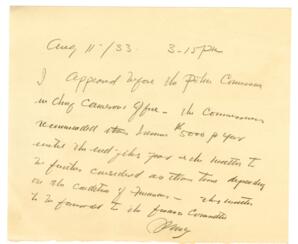 Aug 11/33. 3-15 pm
I appeared before the Police Commission
in Chief Camerons Office - the Commission
recommended $5000 p year
until the end of this year & the matter to
be further considered at that time depending
on the condition of finances - this matter
to be forwarded to the finance Committee